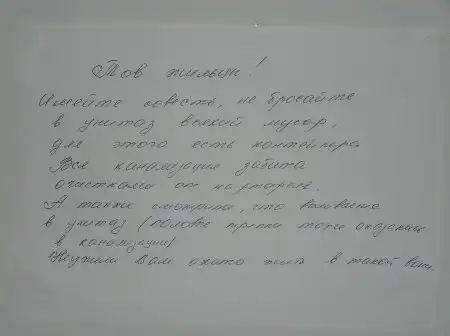 Тов жильцы!
Имейте совесть, не бросайте
в унитаз всякий мусор,
для этого есть контейнера
Вся канализация забита
очистками от картофеля.
А также смотрите, что выливаете
в унитаз (половые тряпки тоже оказались
в канализации)
Неужели Вам охота жить в такой